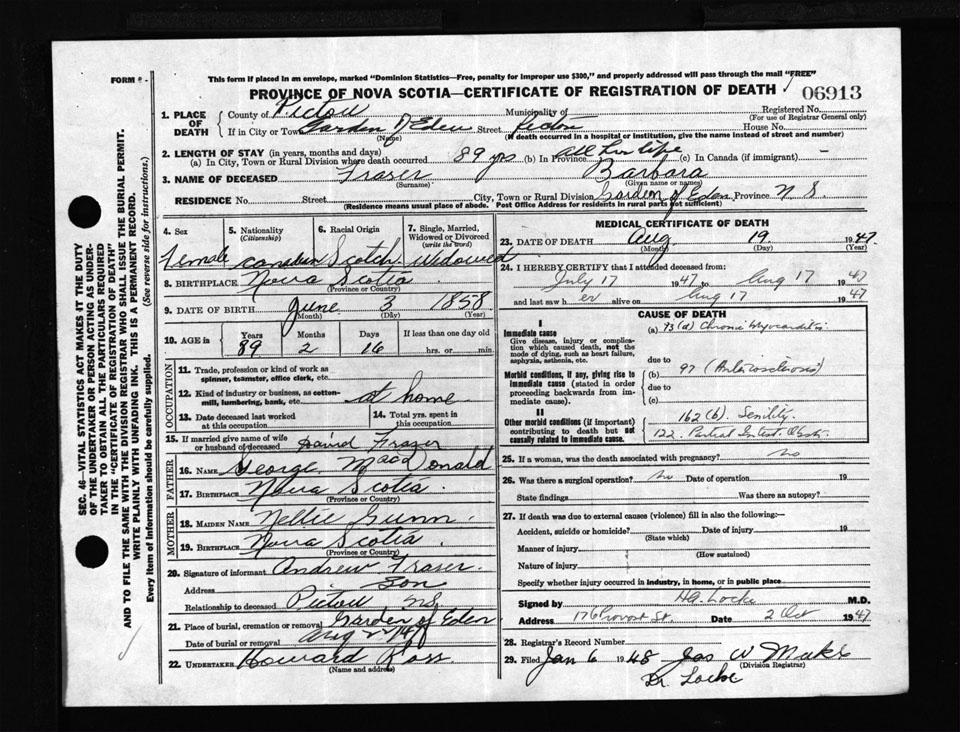 FORM
This form if placed in an envelope, marked "Dominion Statistics—Free, penalty for improper use $300," and properly addressed will pass through the mail "FREE"
PROVINCE OF NOVA SCOTIA—CERTIFICATE OF REGISTRATION OF DEATH
06913
1. PLACE OF DEATH
County of Pictou Municipality of Registered No.
(For use of Registrar General only)
If in City or Town Garden of Eden Street House No.
(Name) (If death occurred in a hospital or institution, give the name instead of street and number)
2. LENGTH OF STAY (in years, months and days)
(a) In City, Town or Rural Division where death occurred 89 yrs (b) In Province all her life (c) In Canada (if immigrant) —
3. NAME OF DECEASED Fraser Barbara
(Surname) (Given name or names)
RESIDENCE No. Street City, Town or Rural Division Garden of Eden Province N S
(Residence means usual place of abode. Post Office Address for residents in rural parts not sufficient)
4. Sex Female
5. Nationality (Citizenship) Canadian
6. Racial Origin Scotch
7. Single, Married, Widowed or Divorced (write the word) Widowed
8. BIRTHPLACE Nova Scotia
(Province or Country)
9. DATE OF BIRTH June 3 1858
(Month) (Day) (Year)
10. AGE in Years Months Days If less than one day
89 2 16 hrs. or min.
OCCUPATION
11. Trade, profession or kind of work as spinner, teamster, office clerk, etc.
12. Kind of industry or business, as cotton-mill, lumbering, bank, etc. at home
13. Date deceased last worked at this occupation
14. Total yrs. spent in this occupation
15. If married give name of wife or husband of deceased David Frazer
FATHER
16. NAME George MacDonald
17. BIRTHPLACE Nova Scotia
(Province or Country)
MOTHER
18. MAIDEN NAME Nellie Gunn
19. BIRTHPLACE Nova Scotia
(Province or Country)
20. Signature of informant Andrew Fraser
Address Son
Relationship to deceased Pictou NS
21. Place of burial, cremation or removal Garden of Eden
Date of burial or removal Aug
22. UNDERTAKER Howard Ross
(Name and address)
MEDICAL CERTIFICATE OF DEATH
23. DATE OF DEATH Aug 19 1947
(Month) (Day) (Year)
24. I HEREBY CERTIFY that I attended deceased from:
July 17 1947 to Aug 17 1947
and last saw her alive on Aug 17 1947
CAUSE OF DEATH
I
Immediate cause
Give disease, injury or complication which caused death, not the mode of dying, such as heart failure, asphyxia, asthenia, etc.
(a) 93 (d) Chronic Myocarditis
due to
Morbid conditions, if any, giving rise to immediate cause (stated in order proceeding backwards from immediate cause).
(b) 97 (Arteriosclerosis)
due to
(c)
II
Other morbid conditions (if important) contributing to death but not causally related to immediate cause.
162 (b). Senility.
122. Partial Intest. Obstr.
25. If a woman, was the death associated with pregnancy? no
26. Was there a surgical operation? no Date of operation 19
State findings Was there an autopsy?
27. If death was due to external causes (violence) fill in also the following:—
Accident, suicide or homicide? Date of injury 19
(State which)
Manner of injury
(How sustained)
Nature of injury
Specify whether injury occurred in industry, in home, or in public place
Signed by H.A. Locke M.D.
Address 176 Provost St. Date 2 Oct 1947
28. Registrar's Record Number
29. Filed Jan 6 1948 Jas W
(Division Registrar)
Dr. Locke
SEC. 46—VITAL STATISTICS ACT MAKES IT THE DUTY
OF THE UNDERTAKER OR PERSON ACTING AS UNDER-
TAKER TO OBTAIN ALL THE PARTICULARS REQUIRED
IN THE "CERTIFICATE OF REGISTRATION OF DEATH"
AND TO FILE THE SAME WITH THE DIVISION REGISTRAR WHO SHALL ISSUE THE BURIAL PERMIT.
WRITE PLAINLY WITH UNFADING INK. THIS IS A PERMANENT RECORD.
Every item of Information should be carefully supplied. (See reverse side for instructions.)